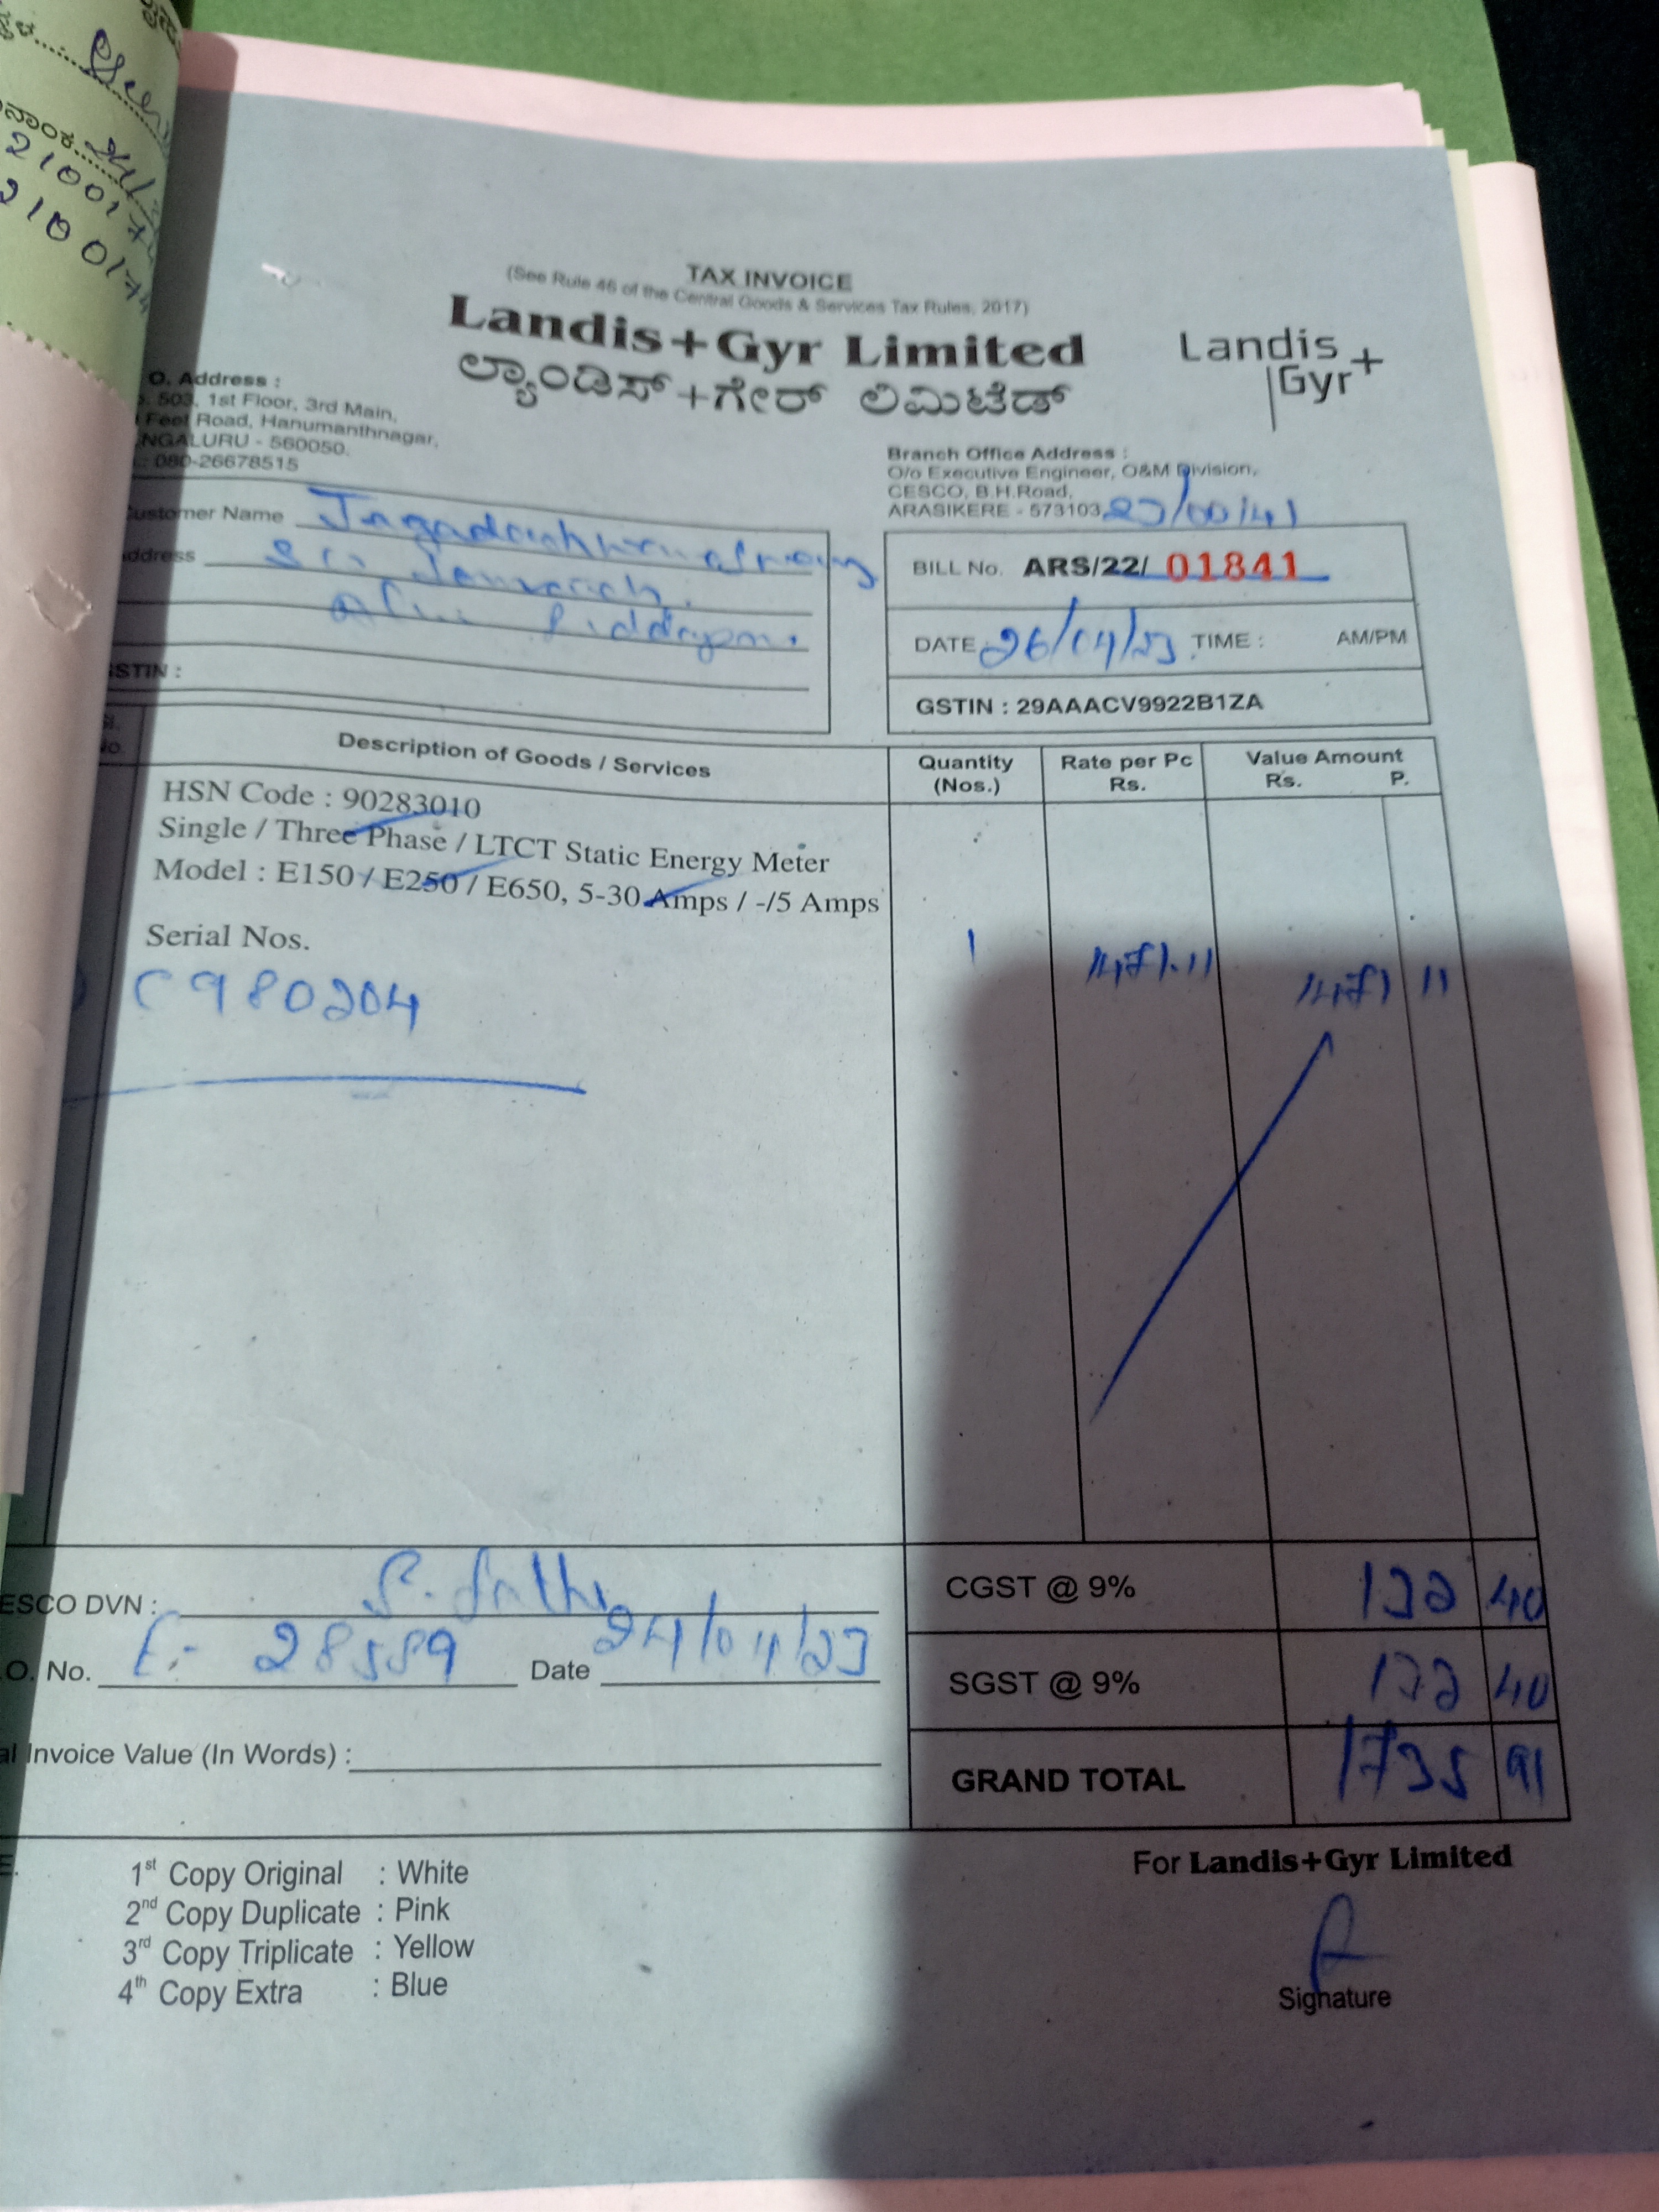 21001
TAX INVOICE
(See Rule 46 of the Central Goods & Services Tax Rules, 2017)
Landis+Gyr Limited
ಲ್ಯಾಂಡಿಸ್+ಗೇರ್ ಲಿಮಿಟೆಡ್
Landis
Gyr+
O. Address :
503, 1st Floor, 3rd Main,
Feet Road, Hanumanthnagar,
NGALURU - 560050.
: 080-26678515
Branch Office Address :
O/o Executive Engineer, O&M Division,
CESCO, B.H.Road,
ARASIKERE - 573103
ustomer Name
ddress
STIN :
BILL No. ARS/22/ 01841
DATE 26/04/23 TIME : AM/PM
GSTIN : 29AAACV9922B1ZA
Sl. No. Description of Goods / Services Quantity (Nos.) Rate per Pc Rs. Value Amount Rs. P.
HSN Code : 90283010
Single / Three Phase / LTCT Static Energy Meter
Model : E150 / E250 / E650, 5-30 Amps / -/5 Amps
Serial Nos.
1 1471.11 1471 11
C980204
ESCO DVN :
CGST @ 9% 132 40
O. No. 28589 Date 24/04/23
SGST @ 9% 132 40
al Invoice Value (In Words) :
GRAND TOTAL 1735 91
1st Copy Original : White
2nd Copy Duplicate : Pink
3rd Copy Triplicate : Yellow
4th Copy Extra : Blue
For Landis+Gyr Limited
Signature